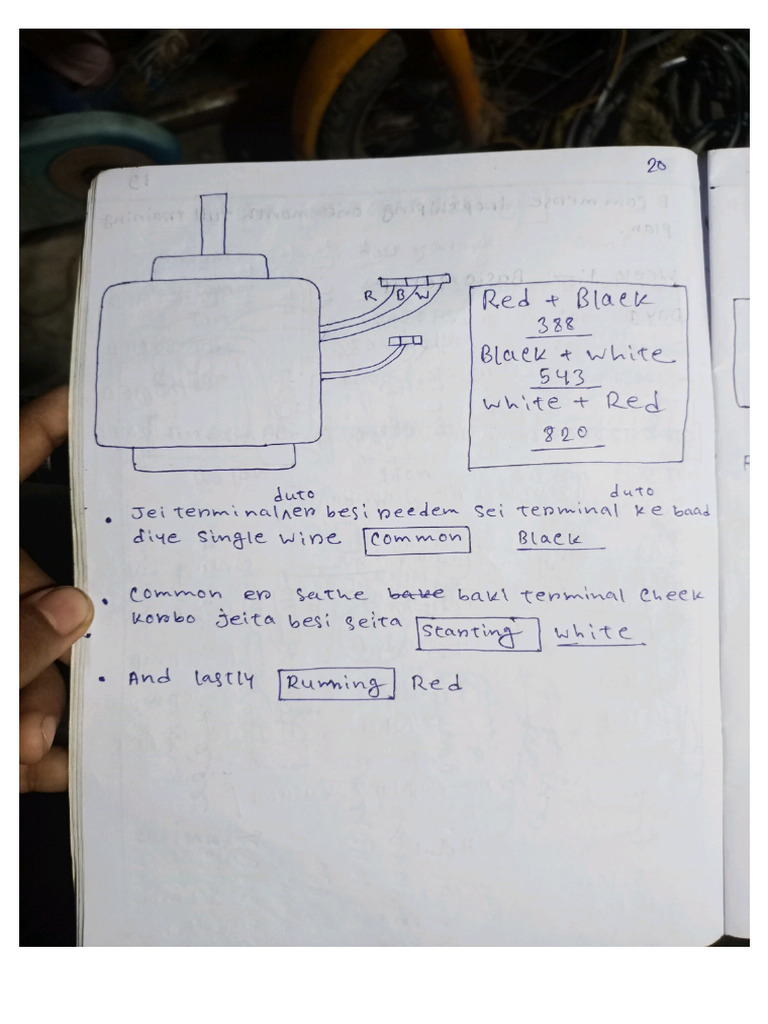 20
R B W
Red + Black
388
Black + white
543
white + Red
820
duto duto
• Jei terminal^er besi reedem sei terminal ke baad
diye single wire Common Black
• Common er sathe bake baki terminal Check
korbo jeita besi seita Starting white
• And lastly Running Red